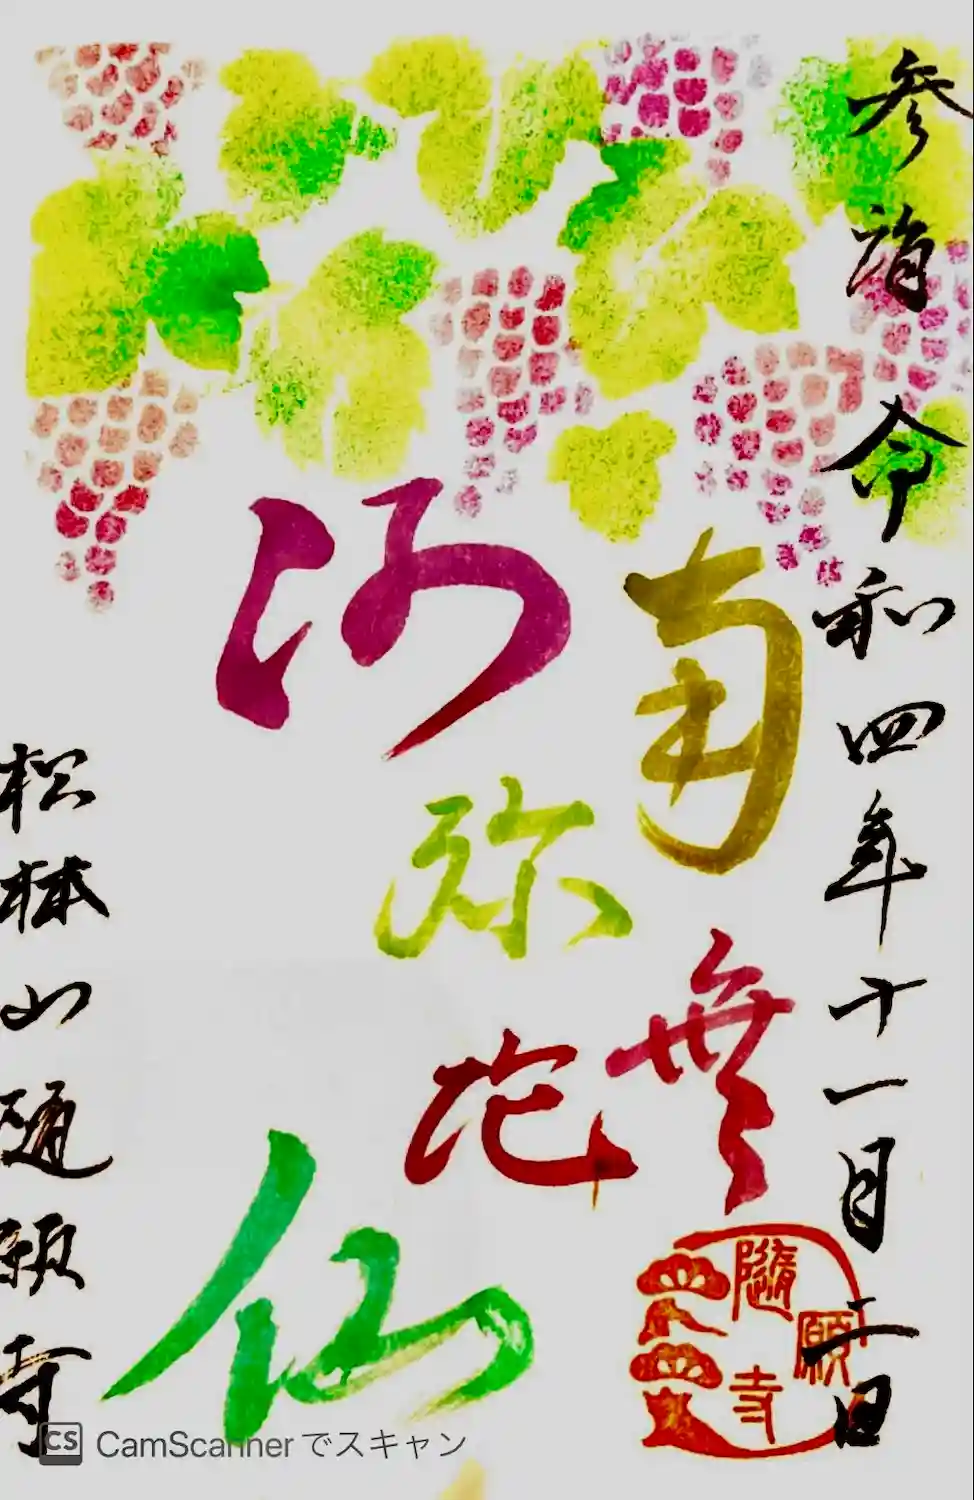 参詣 令和四年十一月二日
南無
阿弥陀
仏
松林山随願寺
隨願寺
CS CamScannerでスキャン